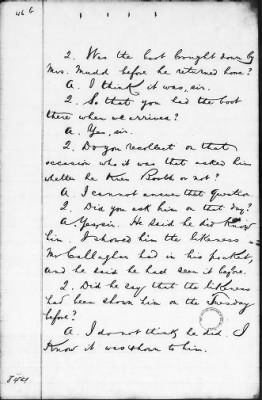 46 b
Q. Was the boot brought down by
Mrs. Mudd before he returned home?
A. I think it was, sir.
Q. So that you had the boot
there when he arrived?
A. Yes, sir.
Q. Do you recollect on that
occasion who it was that asked him
whether he knew Booth or not?
A. I cannot answer that question
Q. Did you ask him on that day?
A. Yes, sir. He said he did know
him. I showed him the likeness
Mr Callaghan had in his pocket,
and he said he had seen it before.
Q. Did he say that the likeness
had been shown him on the Tuesday
before?
A. I do not think he did. I
Know it was shown to him.